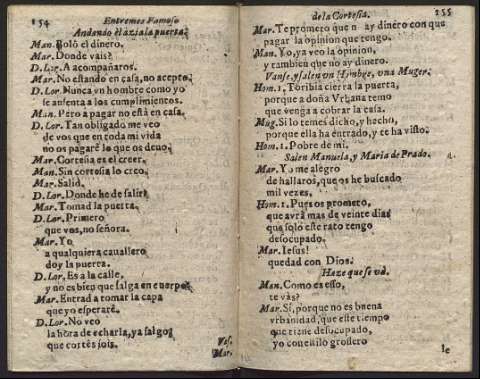 154 Entremes Famoso
Andando ázia la puerta.
Man. Boló el dinero.
Mar. Donde vais?
D. Lor. A acompañaros.
Mar. No estando en casa, no acepto.
D. Lor. Nunca vn hombre como yo
se ausenta a los cumplimientos.
Man. Pero a pagar no está en casa.
D. Lor. Tan obligado me veo
de vos que en toda mi vida
no os pagaré lo que os deuo.
Mar. Cortesia es el creer.
Man. Sin cortesia lo creo.
Mar. Salid.
D. Lor. Donde he de salir?
Mar. Tomad la puerta.
D. Lor. Primero
que vos, no señora.
Mar. Yo
a qualquiera cauallero
doy la puerta.
D. Lor. Es a la calle,
y no es bien que salga en cuerpo.
Mar. Entrad a tomar la capa
que yo esperaré.
D. Lor. No veo
la hora de echarla, ya salgo,
que cortès sois.
Vas.
Mar.
de la Cortesia. 155
Mar. Te prometo que n ay dinero con que
pagar la opinion que tengo.
Man. Yo, ya veo la opinion,
y tambien que no ay dinero.
Vanse, y salen un Hombre, una Muger.
Hom. 1. Toribia cierra la puerta,
porque a doña Vrbana temo
que venga a cobrar la casa.
Mug. Si lo temes dicho, y hecho,
porque ella ha entrado, y te ha visto.
Hom. 1. Pobre de mi.
Salen Manuela, y Maria de Prado.
Mar. Yo me alegro
de hallaros, que os he buscado
mil vezes.
Hom. 1. Pues os prometo,
que avrà mas de veinte dias
que solo este rato tengo
desocupado.
Mar. Iesus!
quedad con Dios.
Haze que se và.
Man. Como es esso,
te vàs?
Mar. Sí, porque no es buena
vrbanidad, que este tiempo
que tiene desocupado,
yo
grossero
le